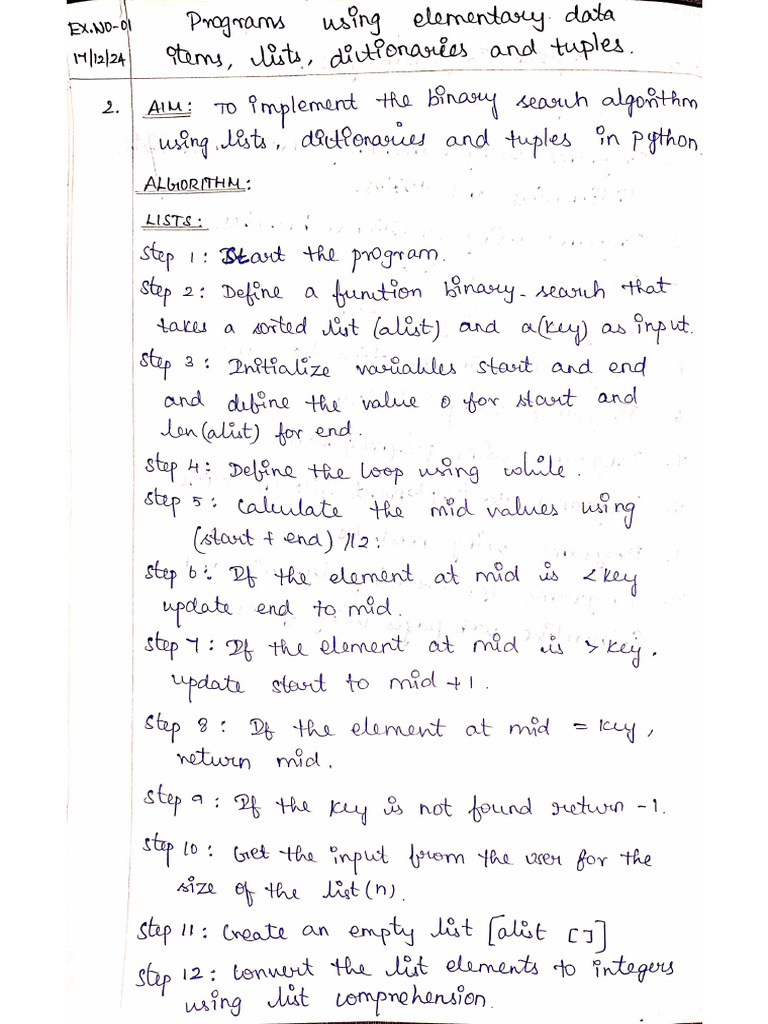 EX.NO-01 Programs using elementary data
17/12/24 items, lists, dictionaries and tuples.
2. AIM: To implement the binary search algorithm
using lists, dictionaries and tuples in python
ALGORITHM:
LISTS:
Step 1: Start the program.
Step 2: Define a function binary-search that
takes a sorted list (alist) and a(key) as input.
Step 3: Initialize variables start and end
and define the value 0 for start and
len(alist) for end.
Step 4: Define the loop using while.
Step 5: Calculate the mid values using
(start + end) //2:
Step 6: If the element at mid is < key
update end to mid.
Step 7: If the element at mid is > key.
update start to mid +1.
Step 8: If the element at mid = key,
return mid.
Step 9: If the key is not found return -1.
Step 10: Get the input from the user for the
size of the list(n).
Step 11: Create an empty list [alist []]
Step 12: Convert the list elements to integers
using list comprehension.